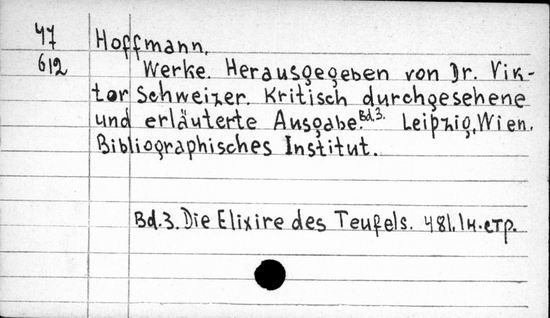 47 Hoffmann,
612 Werke. Herausgegeben von Dr. Vik-
tor Schweizer. Kritisch durchgesehene
und erläuterte Ausgabe. Bd.3. Leipzig, Wien.
Bibliographisches Institut.
Bd.3. Die Elixire des Teufels. 481.1н.стр.